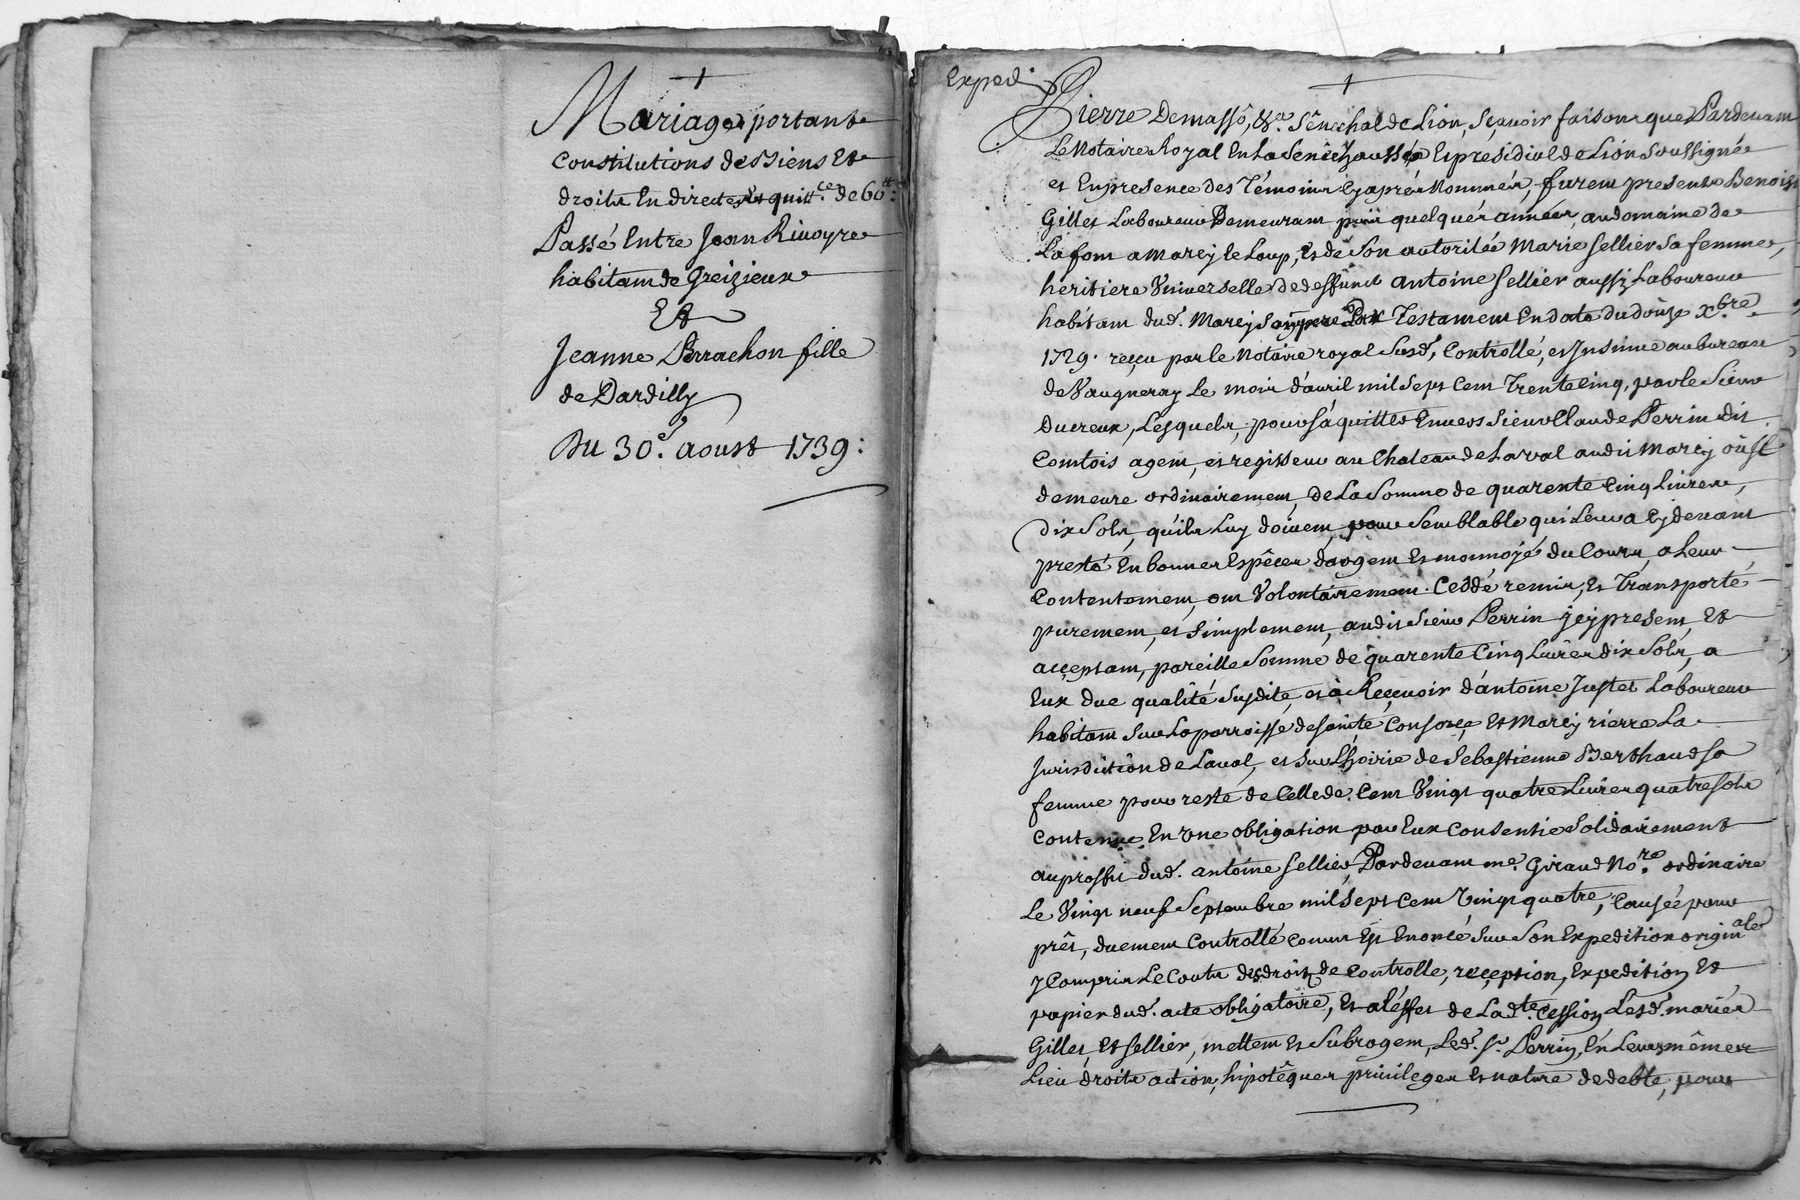 Mariage portant
Constitutions des Biens Et
droits En directe, et quitt.ce de 60 ₶:
Passé Entre Jean Rivoyre
habitant de Greizieux
Et
Jeanne Perrachon fille
de Dardilly
Du 30e. aoust 1739:
Exped.
Pierre Demassô, &a. Sênechal de Lion, Sçavoir faisons que Pardevant
Le Notaire Royal En La Senêchaussée Et présidial de Lion Soussignée
et En presence des Témoins Cy aprés Nommés, furent presents Benoist
Gilles Laboureur Demeurant quelqués années au domaine de
Lafont a Marcy le Loup, Et de Son autorilée Marie Sellier Sa femme,
heritiere Universelle de deffunct Antoine Sellier aussy Laboureur
habitant dud. Marcy Son pere Par Testament En date du douze Xbre.
1729. reçu par le Notaire royal Susd., Controllé, et Insinué au bureau
de Vaugneray Le mois d'avril mil Sept Cent Trente Cinq, par le Sieur
Ducreux, Lesquels, pour S'aquitter Envers Sieur Claude Perrin dit
Comtois agent, et regisseur au Chateau de Larval audit Marcy où Il
demeure ordinairement, de La Somme de quarente Cinq Livres,
dix Sols, qu'ils Luy doivent, pour Semblable qui Leur a Cy devant
presté En bonnes Espêces d'argent Et monnoyé du Cours, a Leur
Contentement, ont Volontairement Ceddé remis, Et Transporté
purement, et Simplement, audit Sieur Perrin Jcy present, Et
acceptant, pareille Somme de quarente Cinq Livres dix Sols, a
Eux due qualité Susdite, et à Reçevoir d'antoine Justet Laboureur
habitant Sur La parroisse de Sainte Consorce Et Marcy rierre La
Jurisdiction de Laval, et Sur L'hoirie de Sebastienne Berthaud Sa
femme pour reste de Celle de Cent Vingt quatre Livres quatre Sols
Contenue En Une obligation par Eux Consentie Solidairement
au proffit dud. antoine Sellier, Pardevant me. Giraud No.re ordinaire
Le Vingt neuf Septembre mil Sept Cent Vingt quatre, Causée pour
prêt, duement Controllé Comme Est Enoncé Sur Son Expedition originale
y Compris Le Couts des droits de Controlle, reception, Expedition Et
papier dud. acte obligatoire, Et a L'éffet de La dte. Cession Lesd. mariés
Gilles, Et Sellier, mettent Et Subrogent, Led. Sr. Perrin, En Leurs mêmes
Lieu droits action, hipotêques privileges Et nature de debte, pour